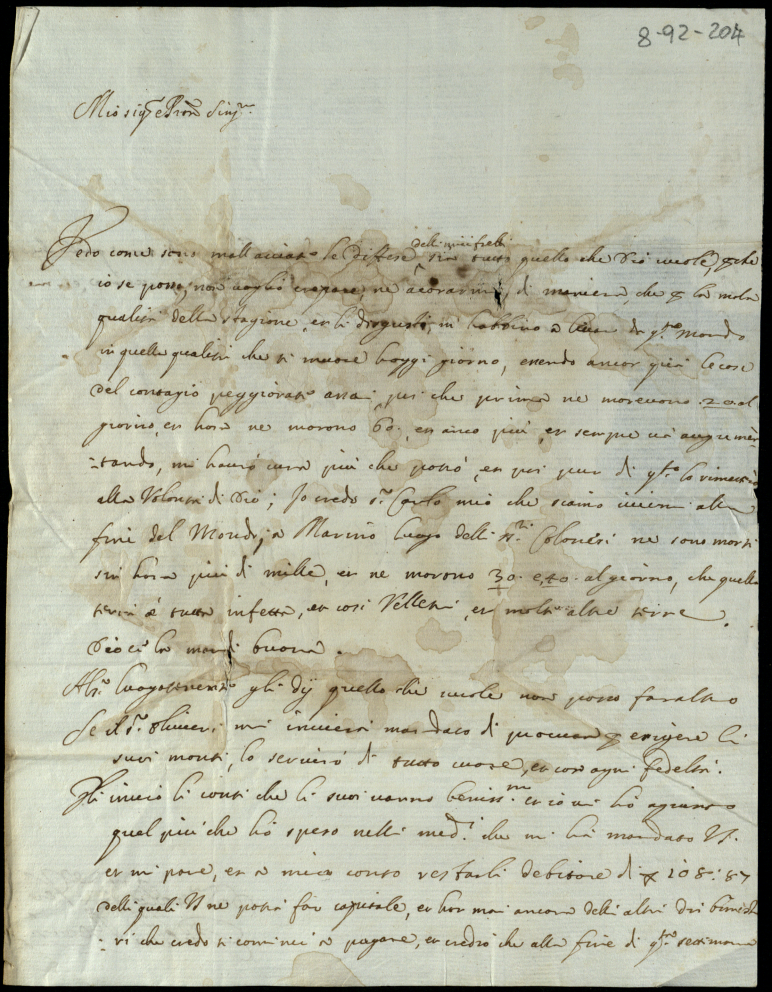 8-92-204
Mio sig.re e Pron
Vedo come sono le Diffese delli miei fratelli sia tutto quello che Dio vuole, che
io se posso, non voglio crepare, ne accorarmi, di maniera, che la mala
qualità della stagione, et li disgusti, mi habbino a levar da q.to Mondo
in quella qualità che si muore hoggi giorno, essendo ancor qui le cose
del contagio peggiorate assai, che prima ne morevono 20 al
giorno, et hora ne morono 60. et anco più, et sempre và augumen-
-tando, mi haverò cura più che potrò, et poi pur di q.to lo rimetto
alla Volontà di Dio; Io credo s.r Carlo mio che siamo vicini alla
fine del Mondo; a Marino luogo delli ss.ri Colonesi ne sono morti
sin hora più di mille, et ne morono 30. e 40. al giorno, che quella
terra è tutta infetta, et cosi Velletri, et molte altre terre.
Dio ce la mandi buona.
Al s.r luogotenente gli dij quello che vuole non posso far altro
Se il s.r Olivieri mi invierà mandato di procura exigere li
suoi monti, lo servirò di tutto cuore, et con ogni fedeltà.
Gli invio li conti che li suoi vanno beniss.mo et io vi hò agiunto
quel più che hò speso nelli med.i che mi hà mandato VS.
et mi pare, et a mio conto restarli debitore di 108:87
delli quali VS ne potrà far capitale, et hor mai ancora delli altri
-ri che credo si cominci a pagare, et credo che alla fine di q.ta settimana